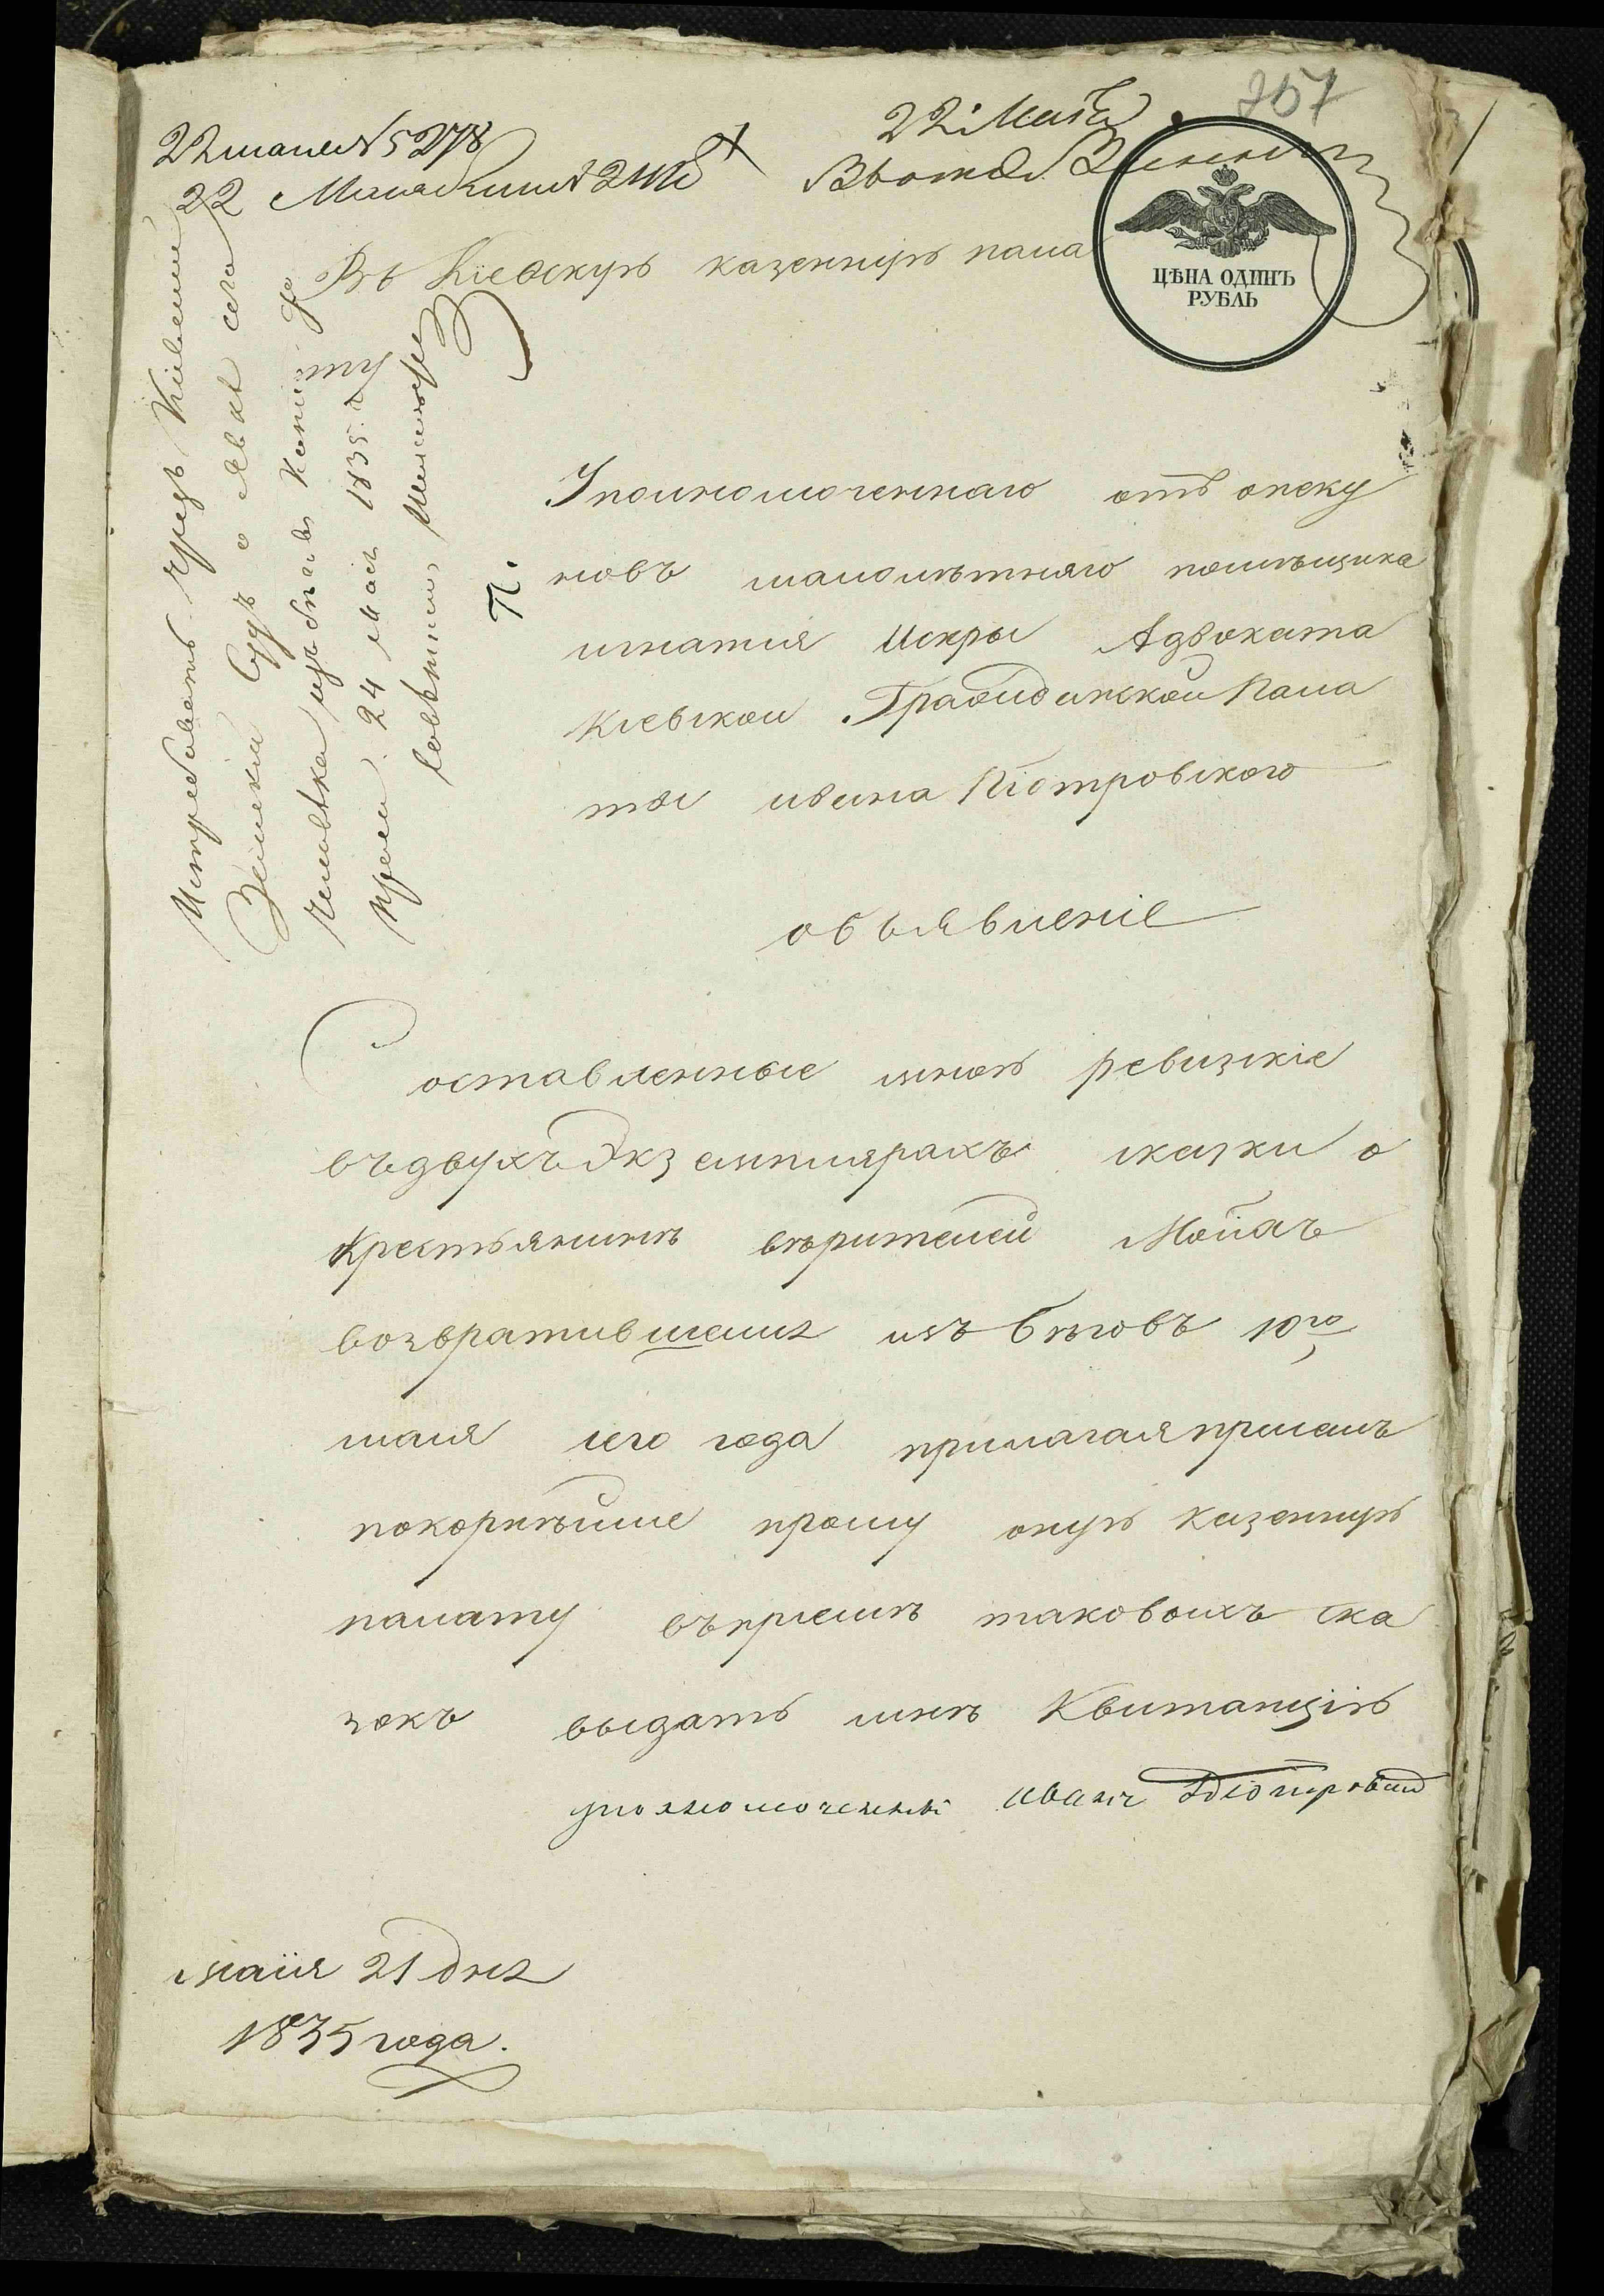 757
22 мая N 5278
22 Мая
22
Въ Кіевскую казенную пала
ЦѢНА ОДИНЪ
РУБЛЬ
Истребовать чрезъ Кіевскій
Земскій Судъ о явкѣ сего
человѣка
24 мая 1835 г.
Совѣтникъ
Уполномоченнаго отъ опеку
новъ малолѣтняго помѣщика
игнатия Искры Адвоката
Кіевской Гражданской Пала
ты ивана Піотровского
объявленіе
Составленные мною ревизкіе
въ двухъ Экземплярахъ сказки о
Крестьянинѣ вѣрителей Моихъ
возвратившемся изъ бѣговъ 10го
маия сего года прилагая при семъ
покорнѣйше прошу оную казенную
палату въ приемѣ таковыхъ ска
зокъ выдать мнѣ Квитанцію
уполномоченный Иванъ Піотровскій
маїя 21 дня
1835 года.